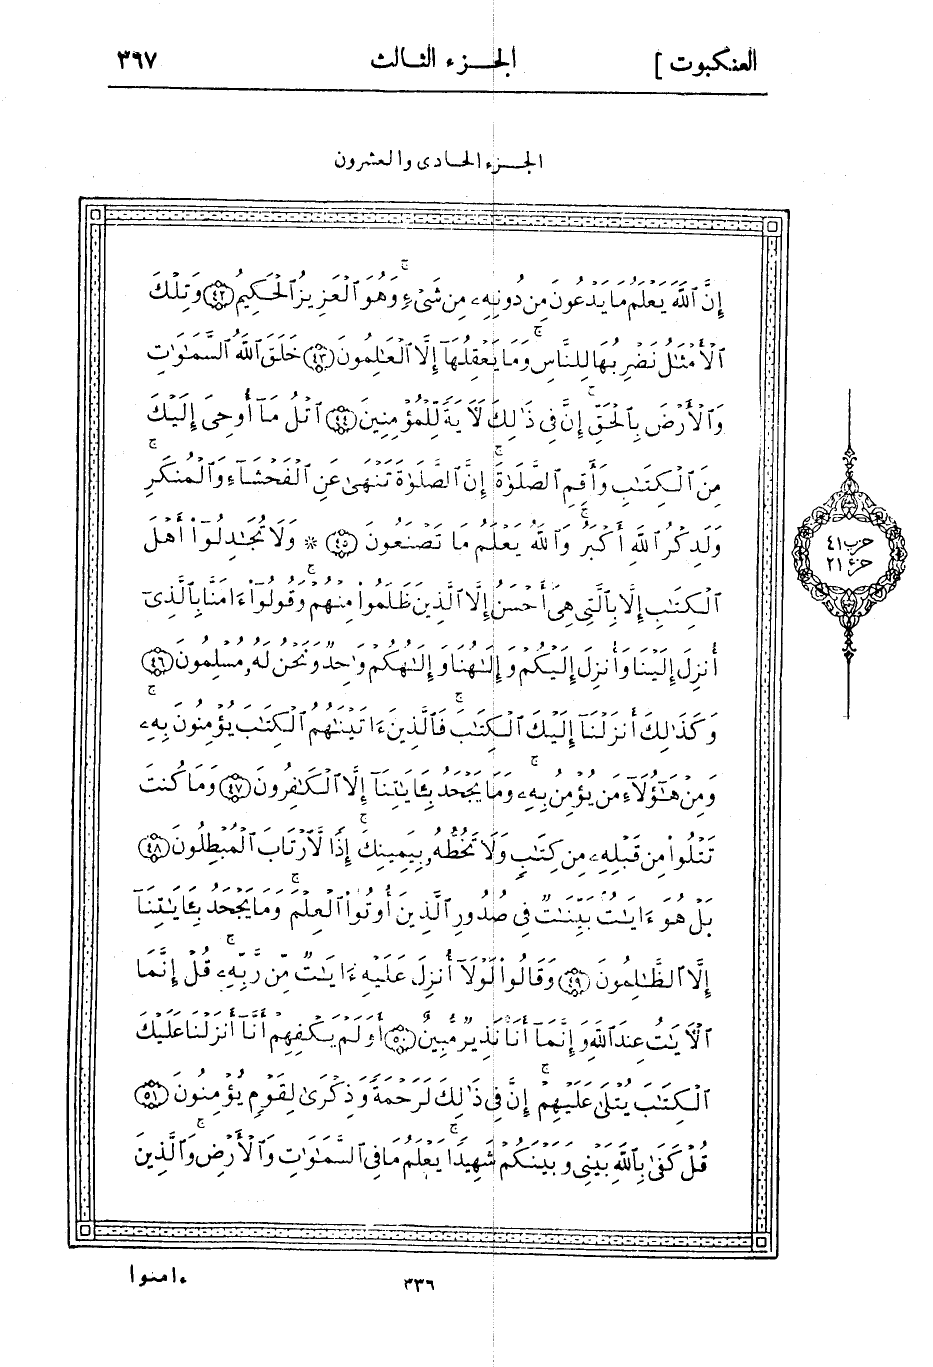 العنكبوت ] الجزء الثالث ٣٩٧
الجزء الحادى والعشرون
إِنَّ ٱللَّهَ يَعْلَمُ مَا يَدْعُونَ مِن دُونِهِۦ مِن شَىْءٍۚ وَهُوَ ٱلْعَزِيزُ ٱلْحَكِيمُ ﴿٤٢﴾ وَتِلْكَ
ٱلْأَمْثَٰلُ نَضْرِبُهَا لِلنَّاسِۖ وَمَا يَعْقِلُهَآ إِلَّا ٱلْعَٰلِمُونَ ﴿٤٣﴾ خَلَقَ ٱللَّهُ ٱلسَّمَٰوَٰتِ
وَٱلْأَرْضَ بِٱلْحَقِّۚ إِنَّ فِى ذَٰلِكَ لَءَايَةً لِّلْمُؤْمِنِينَ ﴿٤٤﴾ ٱتْلُ مَآ أُوحِىَ إِلَيْكَ
مِنَ ٱلْكِتَٰبِ وَأَقِمِ ٱلصَّلَوٰةَۖ إِنَّ ٱلصَّلَوٰةَ تَنْهَىٰ عَنِ ٱلْفَحْشَآءِ وَٱلْمُنكَرِۗ
وَلَذِكْرُ ٱللَّهِ أَكْبَرُۗ وَٱللَّهُ يَعْلَمُ مَا تَصْنَعُونَ ﴿٤٥﴾ * وَلَا تُجَٰدِلُوٓا۟ أَهْلَ
ٱلْكِتَٰبِ إِلَّا بِٱلَّتِى هِىَ أَحْسَنُ إِلَّا ٱلَّذِينَ ظَلَمُوا۟ مِنْهُمْۖ وَقُولُوٓا۟ ءَامَنَّا بِٱلَّذِىٓ
أُنزِلَ إِلَيْنَا وَأُنزِلَ إِلَيْكُمْ وَإِلَٰهُنَا وَإِلَٰهُكُمْ وَٰحِدٌ وَنَحْنُ لَهُۥ مُسْلِمُونَ ﴿٤٦﴾
وَكَذَٰلِكَ أَنزَلْنَآ إِلَيْكَ ٱلْكِتَٰبَۚ فَٱلَّذِينَ ءَاتَيْنَٰهُمُ ٱلْكِتَٰبَ يُؤْمِنُونَ بِهِۦۖ
وَمِنْ هَٰٓؤُلَآءِ مَن يُؤْمِنُ بِهِۦۚ وَمَا يَجْحَدُ بِـَٔايَٰتِنَآ إِلَّا ٱلْكَٰفِرُونَ ﴿٤٧﴾ وَمَا كُنتَ
تَتْلُوا۟ مِن قَبْلِهِۦ مِن كِتَٰبٍ وَلَا تَخُطُّهُۥ بِيَمِينِكَۖ إِذًا لَّٱرْتَابَ ٱلْمُبْطِلُونَ ﴿٤٨﴾
بَلْ هُوَ ءَايَٰتٌۢ بَيِّنَٰتٌ فِى صُدُورِ ٱلَّذِينَ أُوتُوا۟ ٱلْعِلْمَۚ وَمَا يَجْحَدُ بِـَٔايَٰتِنَآ
إِلَّا ٱلظَّٰلِمُونَ ﴿٤٩﴾ وَقَالُوا۟ لَوْلَآ أُنزِلَ عَلَيْهِ ءَايَٰتٌ مِّن رَّبِّهِۦۖ قُلْ إِنَّمَا
ٱلْءَايَٰتُ عِندَ ٱللَّهِ وَإِنَّمَآ أَنَا۠ نَذِيرٌ مُّبِينٌ ﴿٥٠﴾ أَوَلَمْ يَكْفِهِمْ أَنَّآ أَنزَلْنَا عَلَيْكَ
ٱلْكِتَٰبَ يُتْلَىٰ عَلَيْهِمْۚ إِنَّ فِى ذَٰلِكَ لَرَحْمَةً وَذِكْرَىٰ لِقَوْمٍ يُؤْمِنُونَ ﴿٥١﴾
قُلْ كَفَىٰ بِٱللَّهِ بَيْنِى وَبَيْنَكُمْ شَهِيدًاۖ يَعْلَمُ مَا فِى ٱلسَّمَٰوَٰتِ وَٱلْأَرْضِۗ وَٱلَّذِينَ
حزب ٤١
جزء ٢١
ءامنوا
٣٣٦